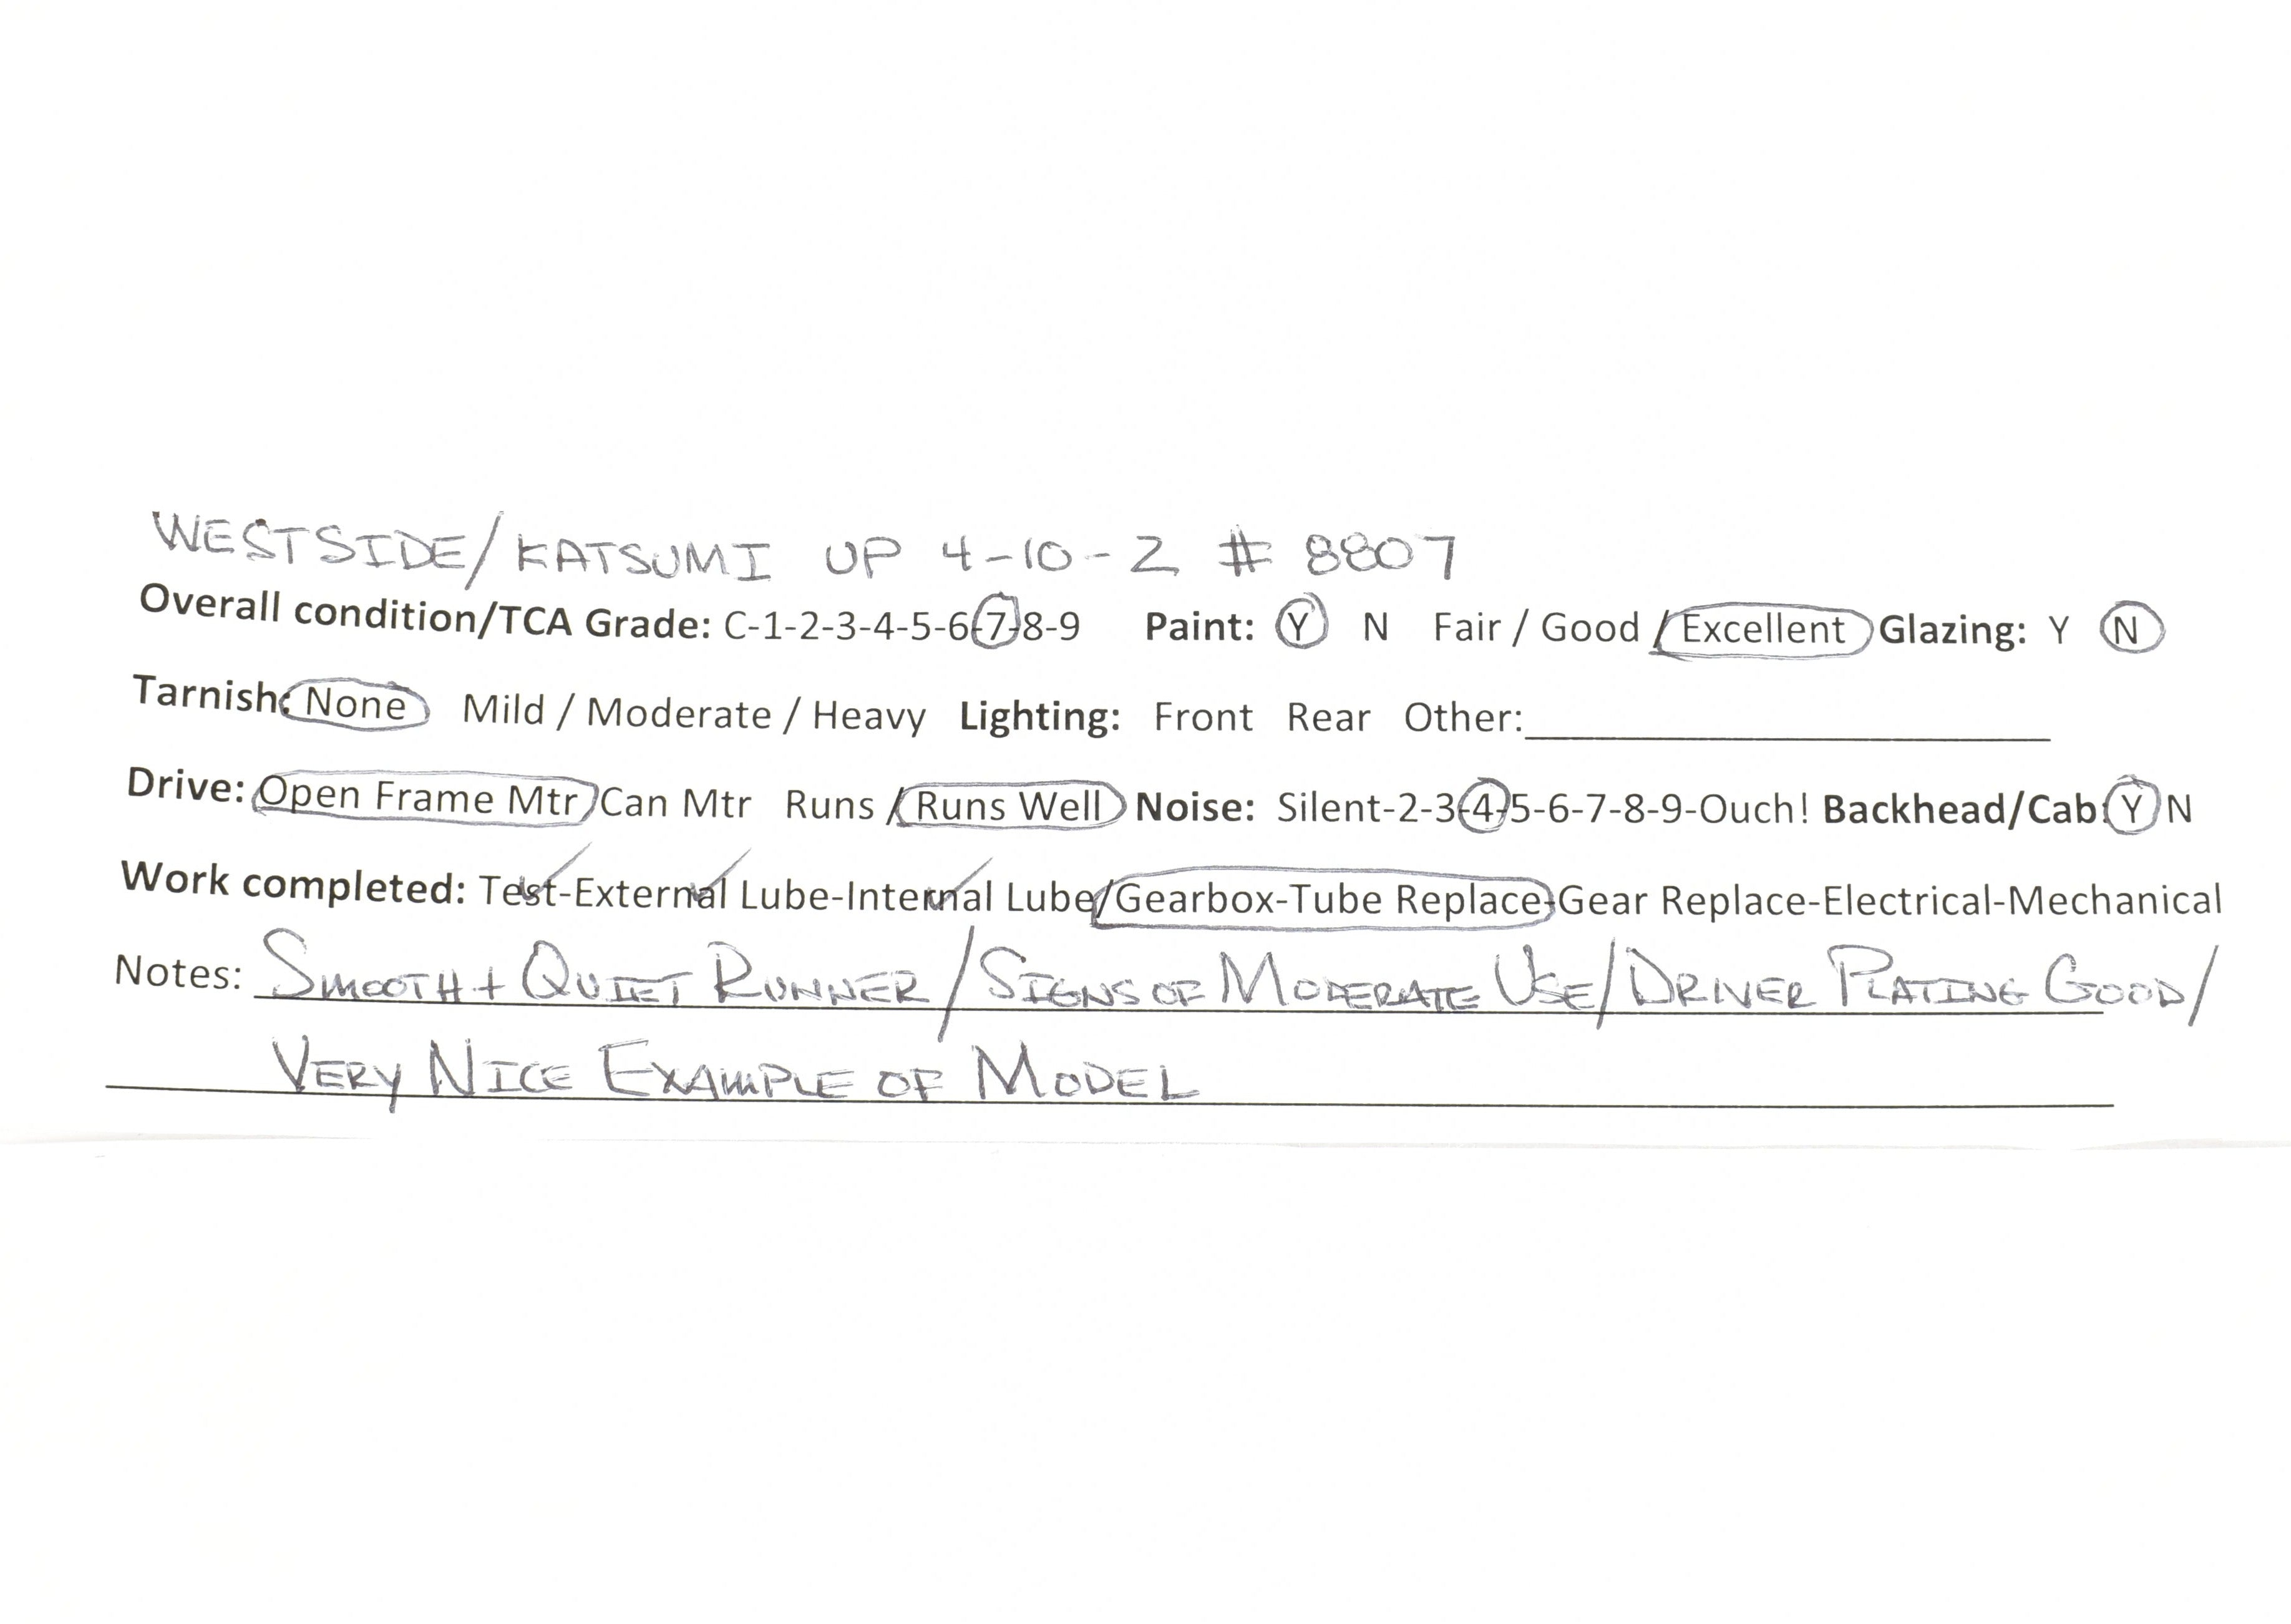 WESTSIDE/KATSUMI UP 4-10-2 # 8807
Overall condition/TCA Grade: C-1-2-3-4-5-6-7-8-9 Paint: Y N Fair / Good / Excellent Glazing: Y N
Tarnish: None Mild / Moderate / Heavy Lighting: Front Rear Other:
Drive: Open Frame Mtr/Can Mtr Runs / Runs Well Noise: Silent-2-3-4-5-6-7-8-9-Ouch! Backhead/Cab: Y N
Work completed: Test-External Lube-Internal Lube/Gearbox-Tube Replace-Gear Replace-Electrical-Mechanical
Notes: SMOOTH + QUIET RUNNER / SIGNS OF MODERATE USE / DRIVER PLATING GOOD /
VERY NICE EXAMPLE OF MODEL